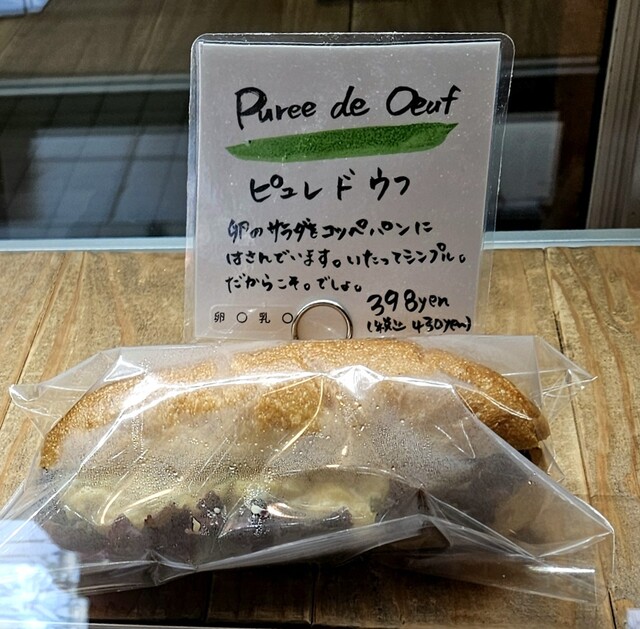 Puree de Oeuf
ピュレ ド ウフ
卵のサラダをコッペパンに
はさんでいます。いたってシンプル。
だからこそ。でしょ。
398yen
(税込 430yen)
卵 ○ 乳 ○